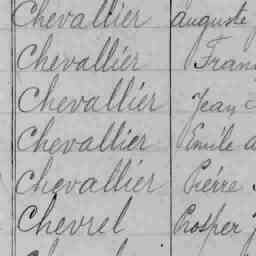 Chevallier auguste
Chevallier Fran
Chevallier Jean
Chevallier Emile
Chevallier Pierre
Chevrel Prosper J